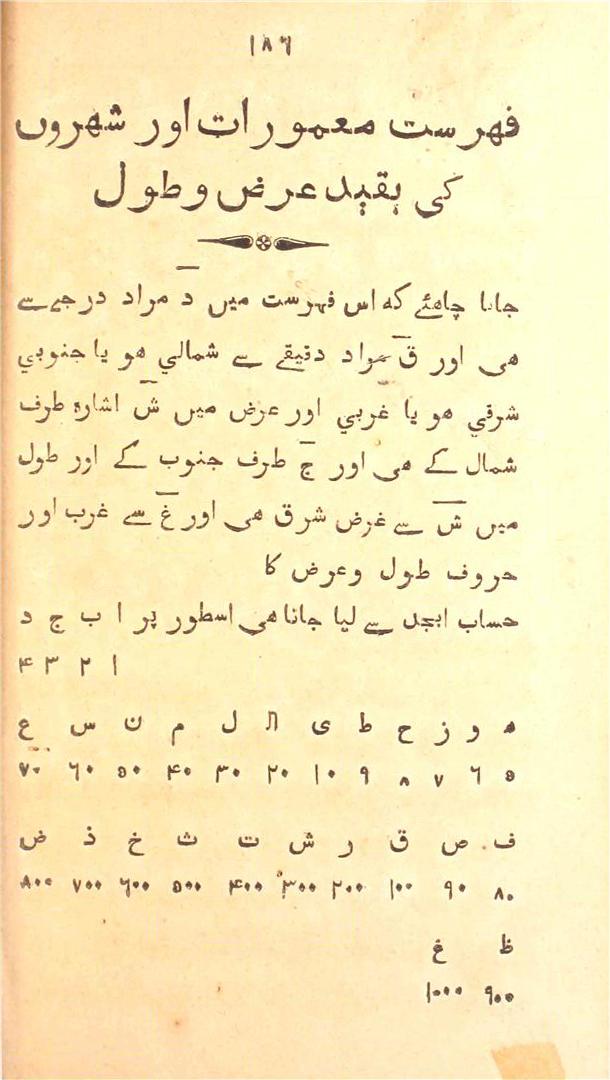 ۱۸۶
فهرست معمورات اور شهروں
کی بقید عرض و طول
جانا چاهئے که اس فهرست میں د مراد درجے سے
هی اور ق مراد دقیقے سے شمالي هو یا جنوبي
شرقي هو یا غربي اور عرض میں ش اشاره طرف
شمال کے هی اور ج طرف جنوب کے اور طول
میں ش سے غرض شرق هی اور غ سے غرب اور
حروف طول و عرض کا
حساب ابجد سے لیا جاتا هی اسطور پر ا ب ج د
۱ ۲ ۳ ۴
ه و ز ح ط ی ك ل م ن س ع
۵ ۶ ۷ ۸ ۹ ۱۰ ۲۰ ۳۰ ۴۰ ۵۰ ۶۰ ۷۰
ف ص ق ر ش ت ث خ ذ ض
۸۰ ۹۰ ۱۰۰ ۲۰۰ ۳۰۰ ۴۰۰ ۵۰۰ ۶۰۰ ۷۰۰ ۸۰۰
ظ غ
۹۰۰ ۱۰۰۰